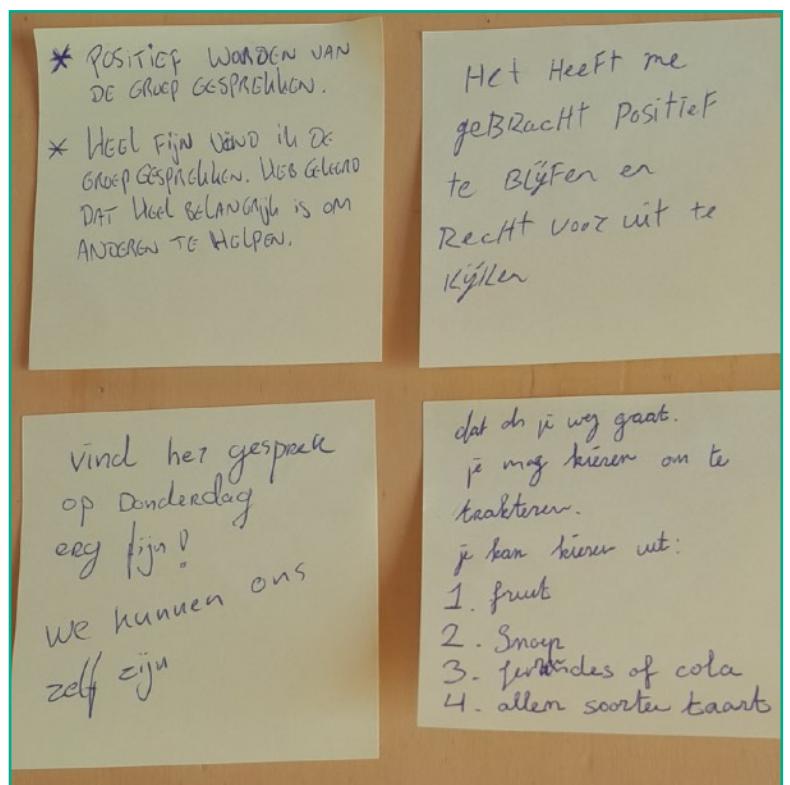 * POSITIEF WORDEN VAN
DE GROEP GESPREKKEN.
* HEEL FIJN VIND IK DE
GROEP GESPREKKEN. HEB GELEERD
DAT HEEL BELANGRIJK IS OM
ANDEREN TE HELPEN.
Het Heeft me
geBRacHt Positief
te Blijfen en
RecHt voor uit te
Kijken
vind het gesprek
op Donderdag
erg fijn!
We kunnen ons
zelf zijn
dat als je weg gaat.
je mag kiezen om te
trakteren.
je kan kiezen uit:
1. fruit
2. Snoep
3. fernandes of cola
4. allem soorten taart